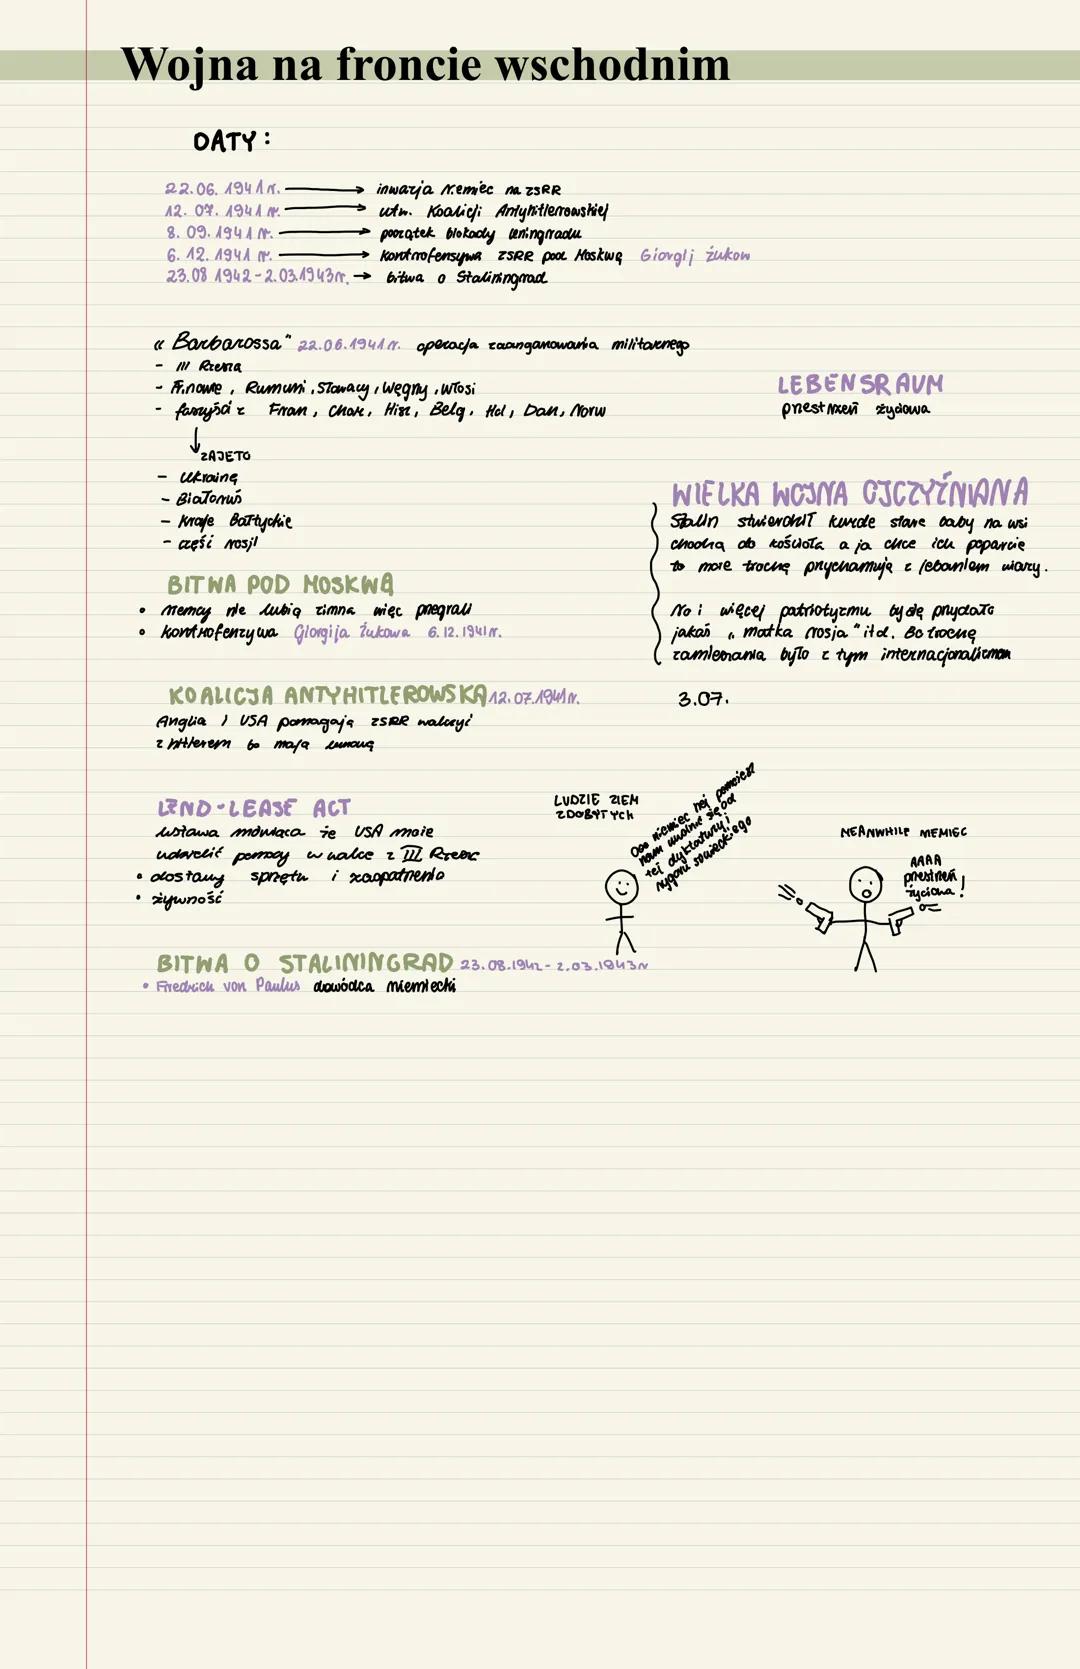 Wojna na froncie wschodnim
DATY:
22.06. 1941 r. → inwazja Niemiec na ZSRR
12. 07. 1941 r. → utw. Koalicji Antyhitlerowskiej
8. 09. 1941 r. → początek blokady Leningradu
6. 12. 1941 r. → kontrofensywa ZSRR pod Moskwą Giorgij Żukow
23.08 1942 - 2.03.1943r. → bitwa o Staliningrad
"Barbarossa" 22.06.1941.r. operacja zaangażowania militarnego
- III Rzesza
- Finowie, Rumuni, Słowacy, Węgry, Włosi
- faszyści z Fran, Chor, Hisz, Belg, Hol, Dan, Norw
↓ ZAJĘTO
- Ukrainę
- Białoruś
- Kraje Bałtyckie
- część rosji
LEBENSRAUM
przestrzeń życiowa
WIELKA WOJNA OJCZYŹNIANA
Stalin stwierdził kurde stare baby na wsi
chodzą do kościoła a ja chce ich poparcie
to może trochę przyhamuję z jebaniem wiary.
No i więcej patriotyzmu by się przydało
jakaś "matka rosja" itd. Bo trochę
zamieszania było z tym internacjonalizmem
3.07.
BITWA POD MOSKWĄ
• niemcy nie lubią zimna więc przegrali
• kontrofenzywa Giorgija Żukowa 6.12.1941r.
KOALICJA ANTYHITLEROWSKA 12.07.1941r.
Anglia i USA pomagają ZSRR walczyć
z hitlerem bo mają umowę
LEND-LEASE ACT
ustawa mówiąca że USA może
udzielić pomocy w walce z III Rzeszą
• dostawy sprzętu i zaopatrzenia
• żywność
LUDZIE ZIEM
ZDOBYTYCH
Ooo niemiec hej pomożesz
nam uwolnić się od
tej dyktatury i
rygoru sowieckiego
MEANWHILE NIEMIEC
AAAA
przestrzeń
życiowa!
BITWA O STALININGRAD 23.08.1942 - 2.03.1943r
• Fredrich von Paulus dowódca niemiecki